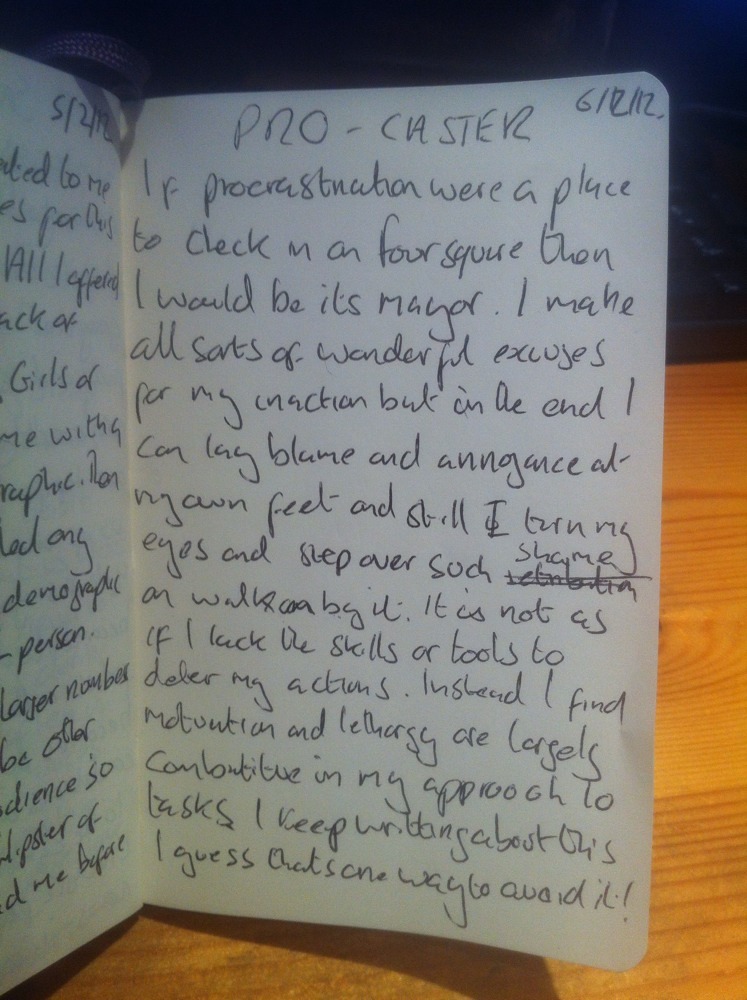 5/2/12
ated to me
es for this
All I offered
ack of
Girls of
me with a
raphic. Then
led any
demographic
person.
larger number
be other
udience so
pster of
d me before
6/12/12.
PRO - CASTER
If procrastination were a place
to check in on four square then
I would be its mayor. I make
all sorts of wonderful excuses
for my inaction but in the end I
can lay blame and annoyance at
my own feet and still I turn my
eyes and step over such shame
retribution
or walk on by it. It is not as
if I lack the skills or tools to
deter my actions. Instead I find
motivation and lethargy are largely
combatitive in my approach to
tasks I keep writting about this
I guess thats one way to avoid it!